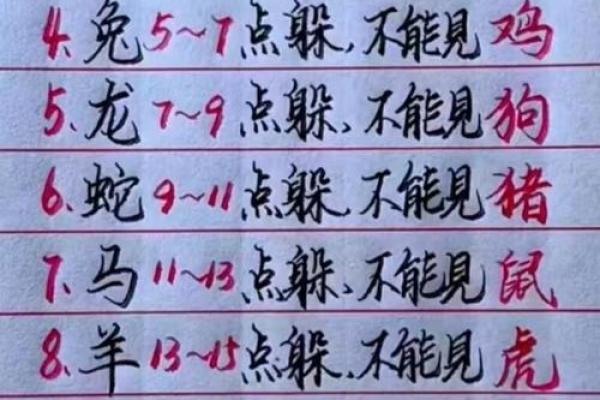 4、兔5~7点躲、不能見鸡
5、龙7~9点躲、不能見狗
6、蛇9~11点躲、不能見猪
7、马11~13点躲、不能見鼠
8、羊13~15点躲、不能見虎